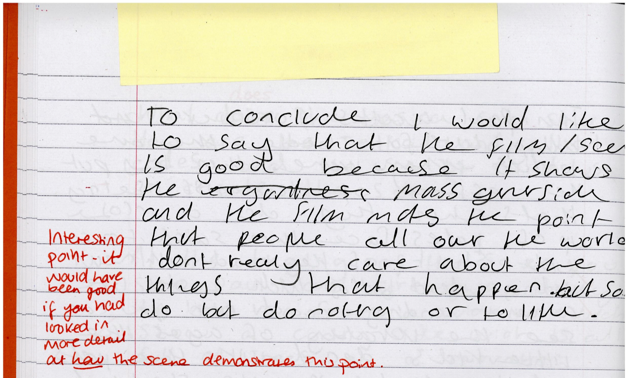 To conclude I would like
to say that the film/sce
is good because it shows
the mass
and the film mdes the point
that people all our the world
dont realy care about the
things that happen. but so
do but do notng or to little.
Interesting
point - it
would have
been good
if you had
looked in
more detail
at how the scene demonstrates this point.